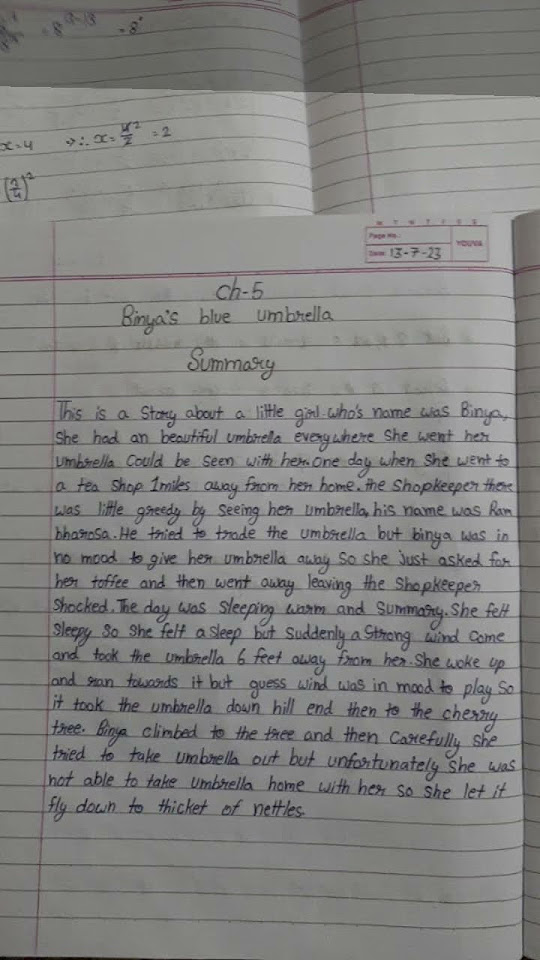 = 8
x=4 ⇒ ∴ x = 4²/2 = 2
M T W T F S S
Page No.:
Date: 13-7-23
YOUVA
Ch-5
Binya's blue umbrella
Summary
This is a Story about a little girl who's name was Binya,
She had an beautiful umbrella everywhere She went her
umbrella Could be Seen with her. One day when She went to
a tea Shop 1miles away from her home. the Shopkeeper there
was little greedy by Seeing her umbrella, his name was Ram
bharosa. He tried to trade the umbrella but binya was in
no mood to give her umbrella away So she just asked for
her toffee and then went away leaving the Shopkeeper
Shocked. The day was Sleeping warm and Summary. She felt
Sleepy So She felt a sleep but Suddenly a Strong wind Come
and took the umbrella 6 feet away from her. She woke up
and ran towards it but guess wind was in mood to play So
it took the umbrella down hill end then to the cherry
tree. Binya climbed to the tree and then Carefully She
tried to take umbrella out but unfortunately She was
not able to take umbrella home with her So She let it
fly down to thicket of nettles.